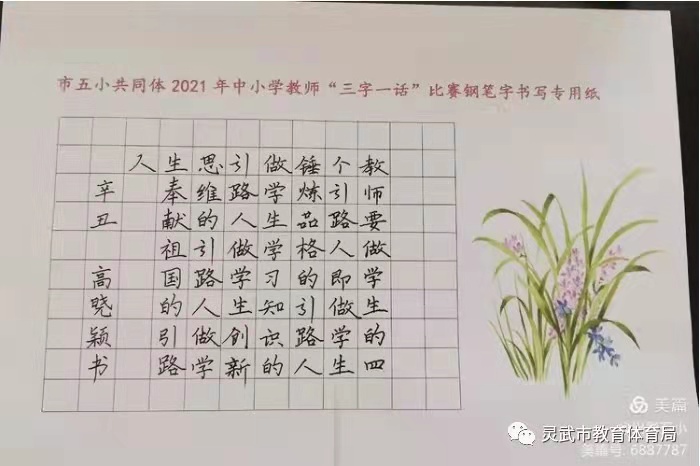 市五小共同体 2021 年中小学教师“三字一话”比赛钢笔字书写专用纸
教师要做学生的四
个引路人即做学生
锤炼品格的引路人
做学生学习知识的
引路人做学生创新
思维的引路人做学
生奉献祖国的引路
人
辛丑 高晓颖书
美篇
灵武市教育体育局
美篇号: 6887787